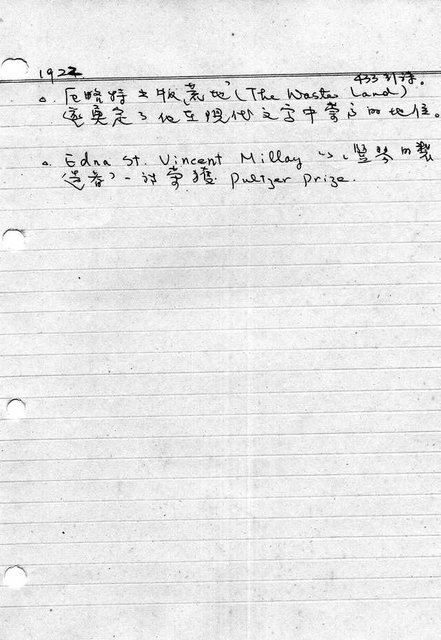 1922
433行詩。
△. 厄略特出版荒地(The Waste Land)
奠定了他在現代文字中崇高的地位。
△. Edna St. Vincent Millay 以「豎琴的製
造者」一詩榮獲 Pulizer Prize.